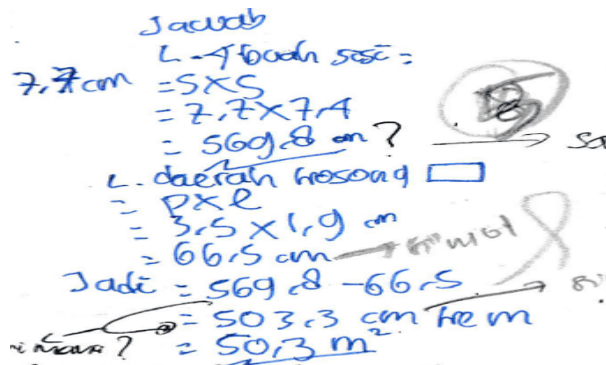 Jawab
L. 4 buah sisi =
7,7 cm = S x S
= 7,7 x 7,4
= 569,8 cm ?
L. daerah kosong
= P x l
= 3,5 x 1,9 cm
= 66,5 cm
Jadi = 569,8 - 66,5
= 503,3 cm ke m
= 50,3 m²